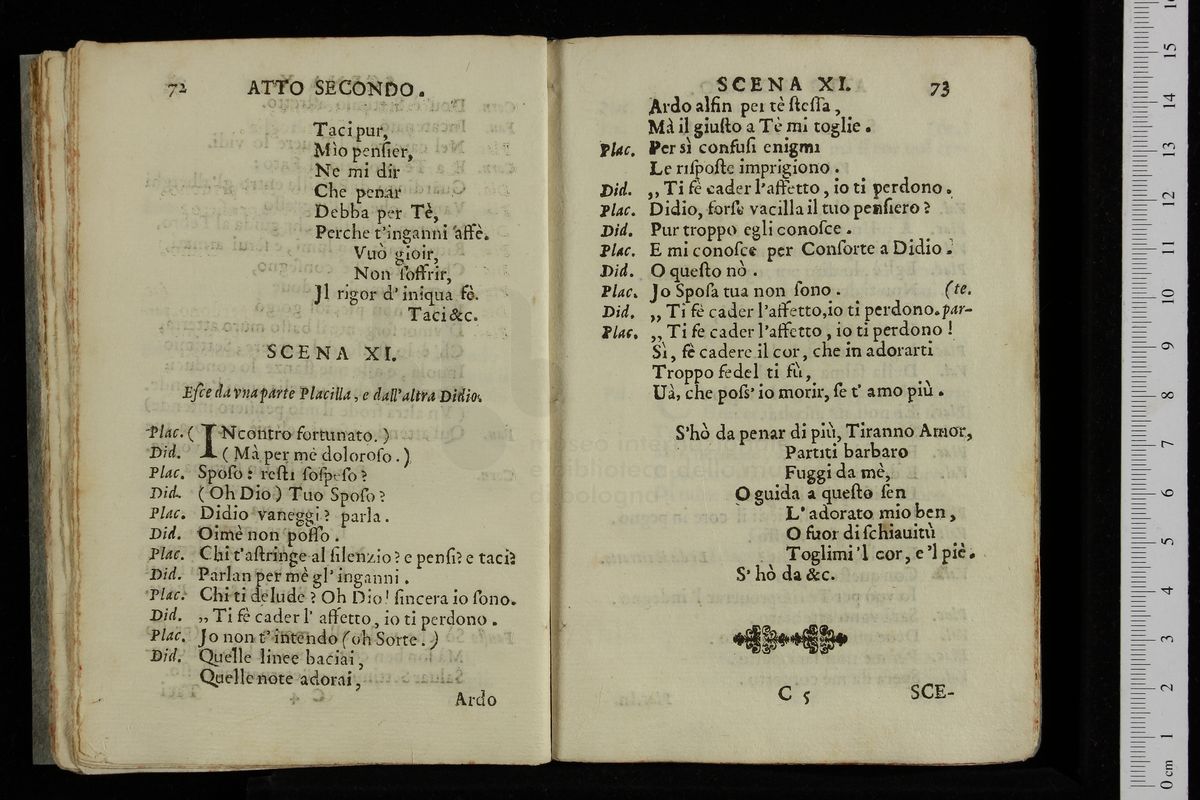 72 ATTO SECONDO.
Taci pur,
Mio penſier,
Ne mi dir
Che penar
Debba per Tè,
Perche t'inganni affè.
Vuò gioir,
Non ſoffrir,
Jl rigor d'iniqua fè.
Taci &c.
SCENA XI.
Eſce da vna parte Placilla, e dall'altra Didio.
Plac. ( INcontro fortunato. )
Did. ( Mà per mè doloroſo. )
Plac. Spoſo: reſti ſoſpeſo?
Did. (Oh Dio) Tuo Spoſo?
Plac. Didio vaneggi? parla.
Did. Oimè non poſſo.
Plac. Chi t'aſtringe al ſilenzio? e penſi? e taci?
Did. Parlan per mè gl' inganni.
Plac. Chi ti delude? Oh Dio! ſincera io ſono.
Did. ,, Ti fè cader l' affetto, io ti perdono.
Plac. Jo non t' intendo (oh Sorte.)
Did. Quelle linee baciai,
Quelle note adorai,
Ardo
SCENA XI. 73
Ardo alfin per tè ſteſſa,
Mà il giuſto a Tè mi toglie.
Plac. Per sì confuſi enigmi
Le riſpoſte imprigiono.
Did. ,, Ti fè cader l'affetto, io ti perdono.
Plac. Didio, forſe vacilla il tuo penſiero?
Did. Pur troppo egli conoſce.
Plac. E mi conoſce per Conſorte a Didio.
Did. O queſto nò.
Plac. Jo Spoſa tua non ſono. (te.
Did. ,, Ti fè cader l'affetto, io ti perdono. par-
Plac. ,, Ti fe cader l'affetto, io ti perdono!
Sì, fè cadere il cor, che in adorarti
Troppo fedel ti fù,
Uà, che poſſ' io morir, ſe t' amo più.
S'hò da penar di più, Tiranno Amor,
Partiti barbaro
Fuggi da mè,
O guida a queſto ſen
L' adorato mio ben,
O fuor di ſchiauitù
Toglimi 'l cor, e 'l piè.
S' hò da &c.
C 5 SCE-